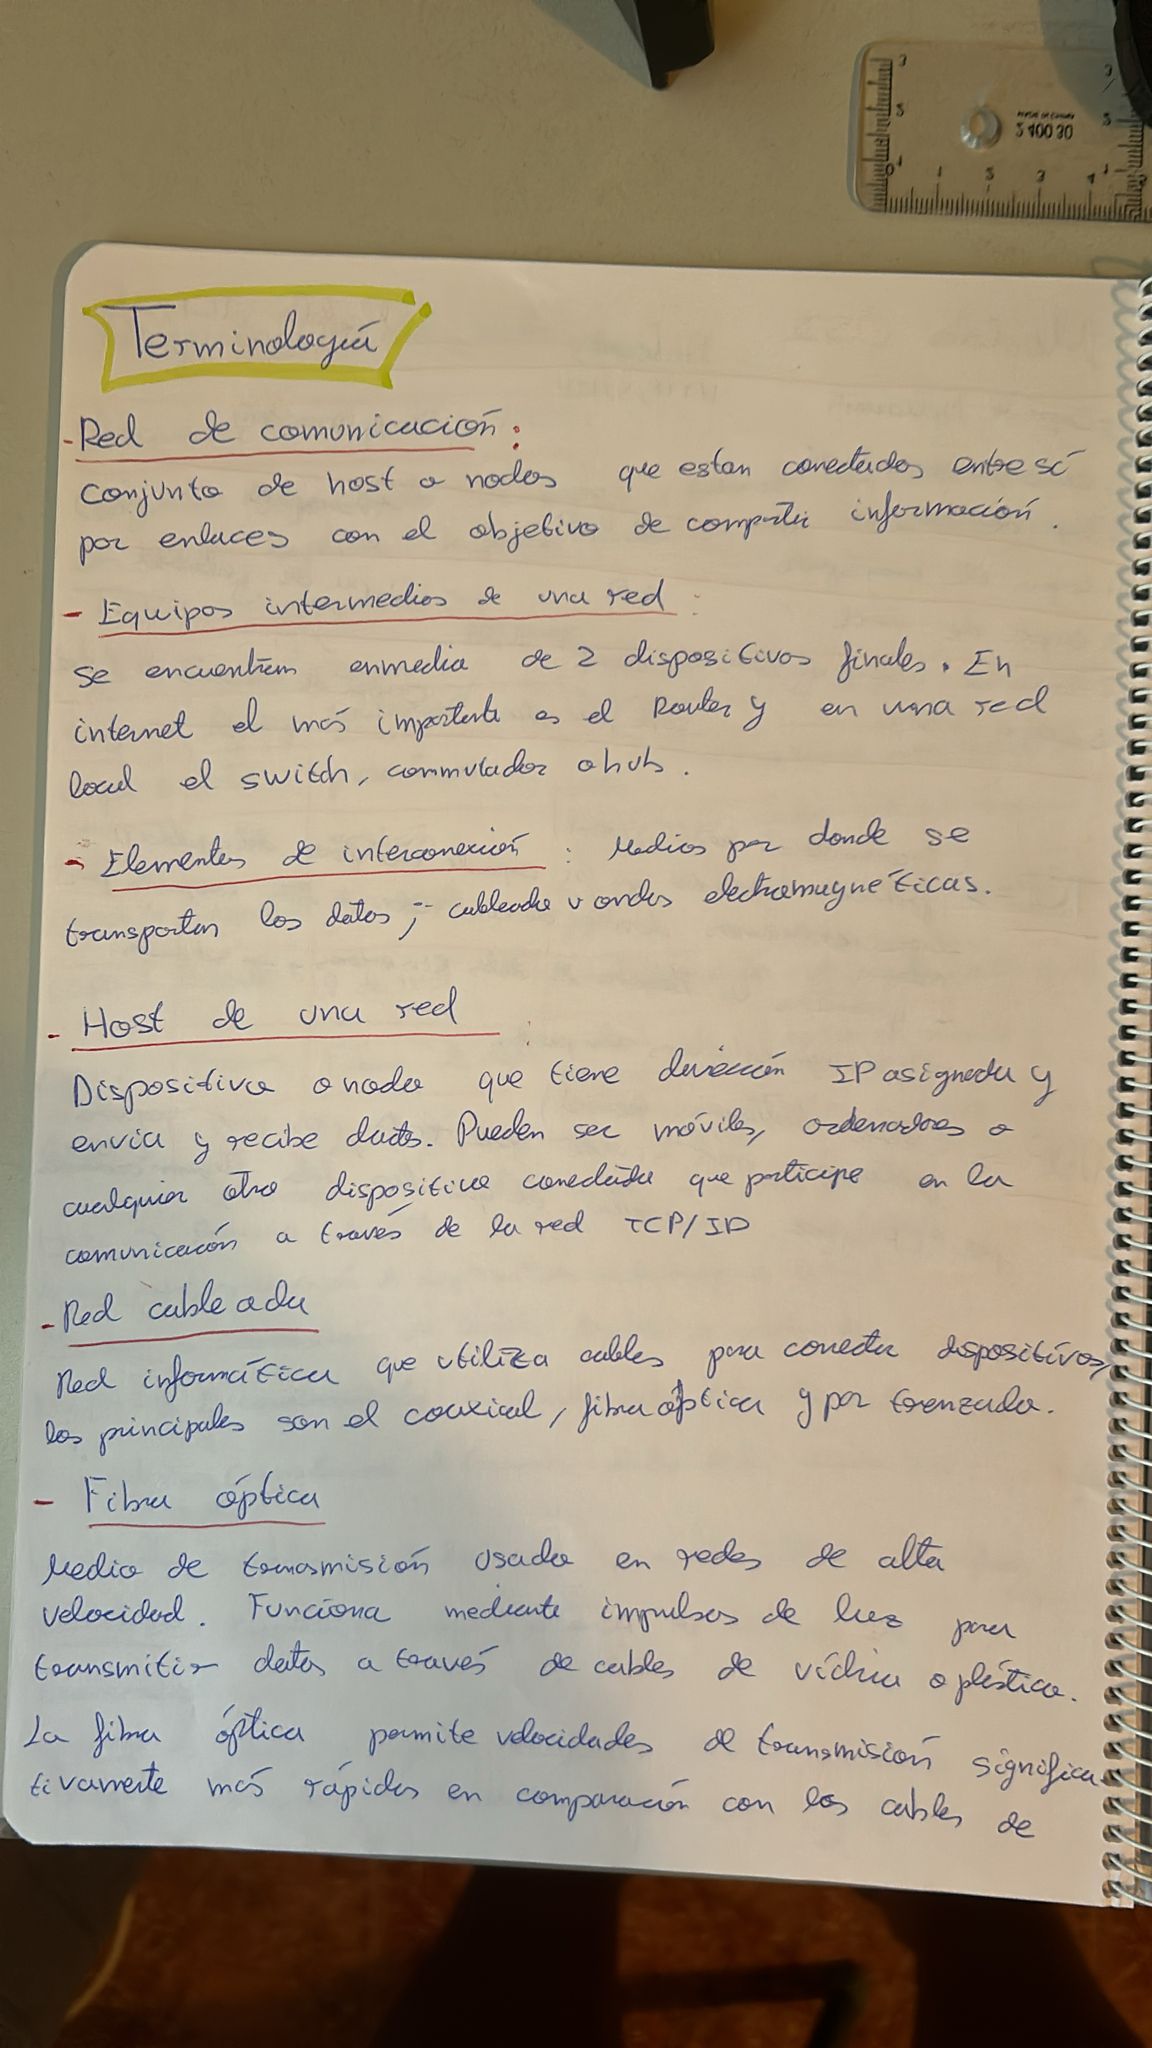 Terminología
- Red de comunicación:
conjunto de host o nodos que estan conectados entre sí
por enlaces con el objetivo de compartir información.
- Equipos intermedios de una red:
se encuentran enmedio de 2 dispositivos finales. En
internet el más importante es el Router y en una red
local el switch, conmutador o hub.
- Elementos de interconexión: Medios por donde se
transportan los datos; cableado u ondas electromagnéticas.
- Host de una red:
Dispositivo o nodo que tiene dirección IP asignada y
envía y recibe datos. Pueden ser móviles, ordenadores o
cualquier otro dispositivo conectado que participe en la
comunicación a través de la red TCP/IP
- Red cableada
Red informática que utiliza cables para conectar dispositivos,
los principales son el coaxical, fibra óptica y par trenzado.
- Fibra óptica
Medio de transmisión usado en redes de alta
velocidad. Funciona mediante impulsos de luz para
transmitir datos a través de cables de vídrio o plástico.
La fibra óptica permite velocidades de transmisión significa-
tivamente más rápidas en comparación con los cables de
MADE IN
2 400 30
3
2
1
0 1 2 3 4